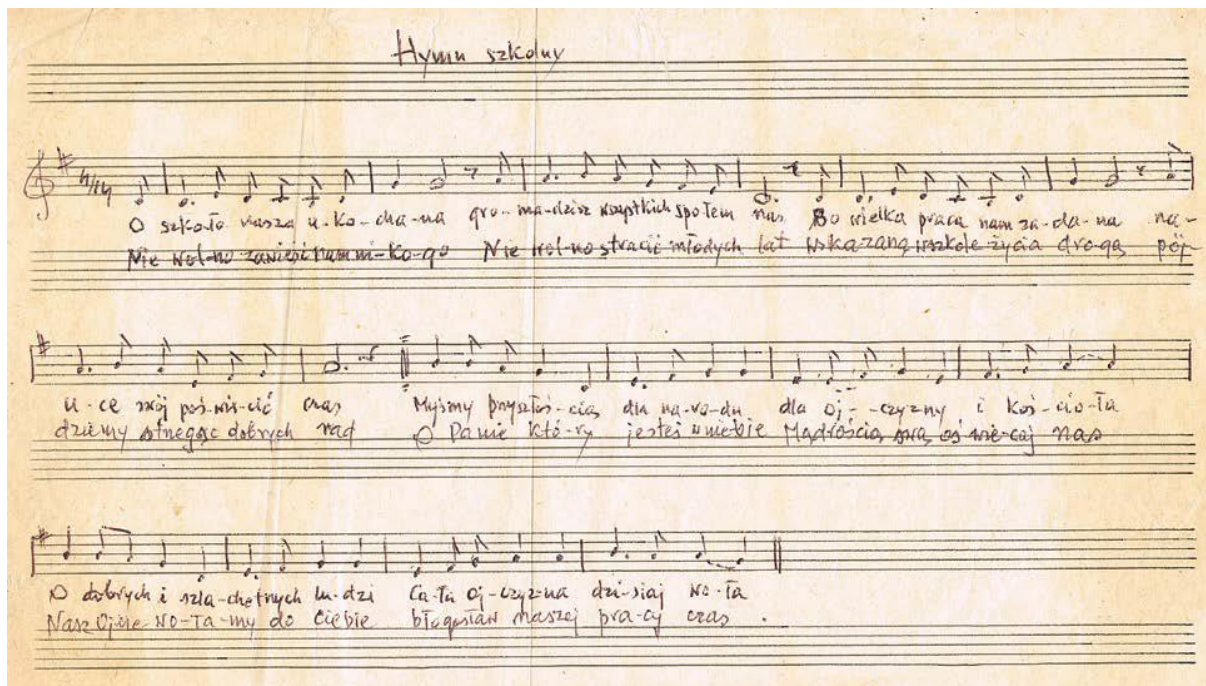 Hymn szkolny
4/4
O szko-ło nasza u-ko-cha-na gro-ma-dzisz wszystkich społem nas Bo wielka praca nam za-da-na na-
Nie wol-no zawieść nam ni-ko-go Nie wol-no stracić młodych lat wskazaną w szkole życia drogą pój-
u-ce swój poś-wię-cić czas Myśmy przyszłoś-cią dla na-ro-du dla oj--czyzny i koś-cio-ła
dziemy strzegąc dobrych rad O Panie któ-ry jesteś w niebie Mądrością swą oś-wie-caj nas
O dobrych i szla-chetnych lu-dzi Ca-ła oj-czyz-na dzi-siaj wo-ła
Nasz Ojcze wo-ła-my do Ciebie błogosław naszej pra-cy czas.